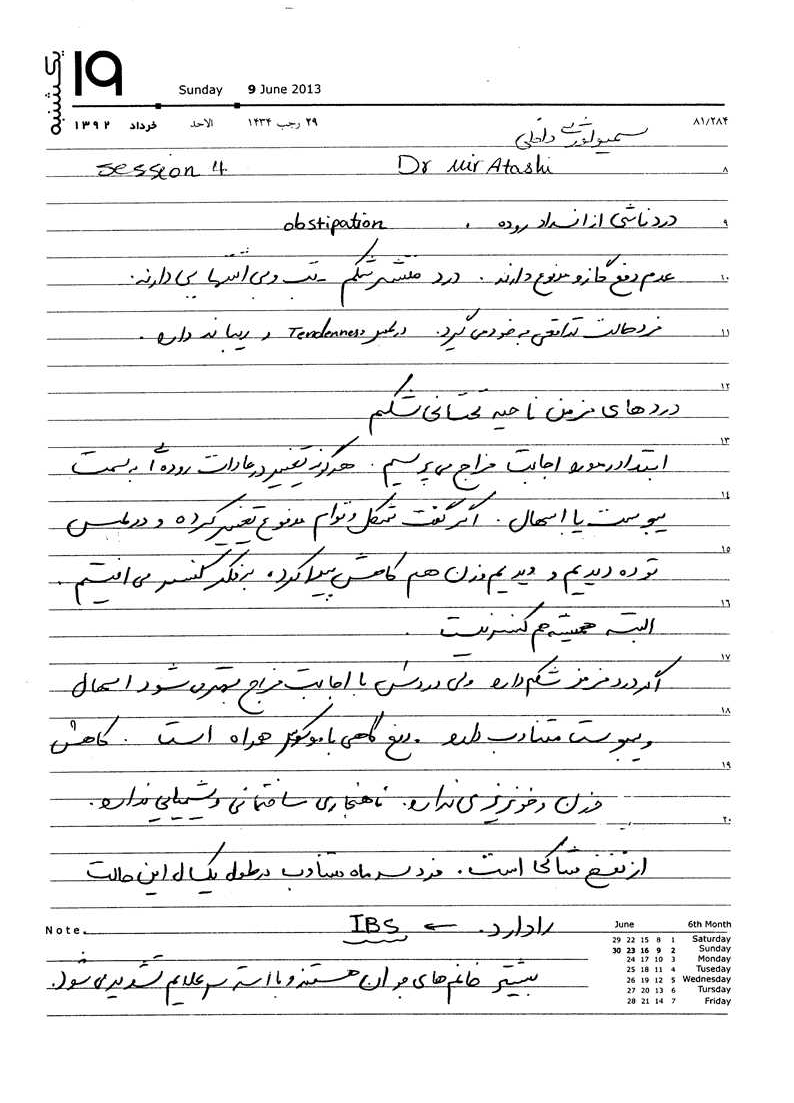 یکشنبه ۱۹
Sunday 9 June 2013
۱۳۹۲ خرداد الاحد ۲۹ رجب ۱۴۳۴ ۸۱/۲۸۴
سمیولوژی داخلی
session 4 Dr Mir Atashi ۸
درد ناشی از انسداد روده . obstipation ۹
عدم دفع گاز و مدفوع دارند . درد منتشر شکم - تب و بی اشتهایی دارند. ۱۰
فرد حالت تدافعی به خود می گیرد. در لمس Tenderness و ریباند دارد . ۱۱
۱۲
درد های مزمن ناحیه تحتانی شکم
۱۳
ابتدا در مورد اجابت مزاج می پرسیم . هرگونه تغییر در عادات روده ای به سمت
۱۴
یبوست یا اسهال . اگر گفت شکل و قوام مدفوع تغییر کرده و در لمس
۱۵
توده دیدیم و دیدیم وزن هم کاهش پیدا کرده به فکر کنسر می افتیم .
۱۶
البته همیشه هم کنسر نیست .
۱۷
اگر درد مزمن شکم دارد ولی دردش با اجابت مزاج بهتر می شود اسهال
۱۸
و یبوست متناوب دارد . دفع گاهی با موکوس همراه است . کاهش
۱۹
وزن و خونریزی ندارد. ناهنجاری ساختمانی و شیمیایی ندارد.
۲۰
از نفخ شاکی است . فرد سه ماه متناوب در طول یک سال این حالت
را دارد. ← IBS
Note.
بیشتر خانم های جوان هستند و با استرس علایم تشدید می شود.
June 6th Month
29 22 15 8 1 Saturday
30 23 16 9 2 Sunday
24 17 10 3 Monday
25 18 11 4 Tuseday
26 19 12 5 Wednesday
27 20 13 6 Tursday
28 21 14 7 Friday